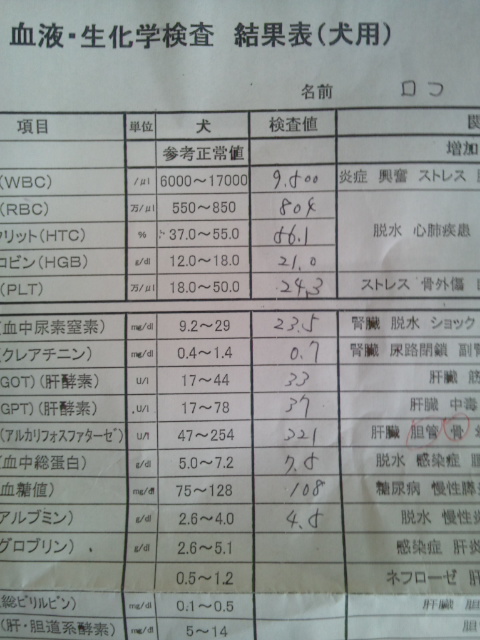 血液・生化学検査 結果表(犬用)
名前 ロコ
項目 単位 犬 検査値
参考正常値 増加
(WBC) /μl 6000～17000 9.800 炎症 興奮 ストレス
(RBC) 万/μl 550～850 804
クリット(HTC) % 37.0～55.0 56.1 脱水 心肺疾患
コビン(HGB) g/dl 12.0～18.0 21.0
(PLT) 万/μl 18.0～50.0 24.3 ストレス 骨外傷
(血中尿素窒素) mg/dl 9.2～29 23.5 腎臓 脱水 ショック
(クレアチニン) mg/dl 0.4～1.4 0.7 腎臓 尿路閉鎖 副腎
GOT)(肝酵素) U/l 17～44 33 肝臓 筋
GPT)(肝酵素) U/l 17～78 37 肝臓 中毒
(アルカリフォスファターゼ) U/l 47～254 321 肝臓 胆管 骨
(血中総蛋白) g/dl 5.0～7.2 7.8 脱水 感染症
血糖値) mg/dl 75～128 108 糖尿病 慢性膵炎
アルブミン) g/dl 2.6～4.0 4.8 脱水 慢性炎
グロブリン) g/dl 2.6～5.1 感染症 肝炎
0.5～1.2 ネフローゼ 肝
(総ビリルビン) mg/dl 0.1～0.5 肝臓 胆
(肝・胆道系酵素) mg/dl 5～14 胆